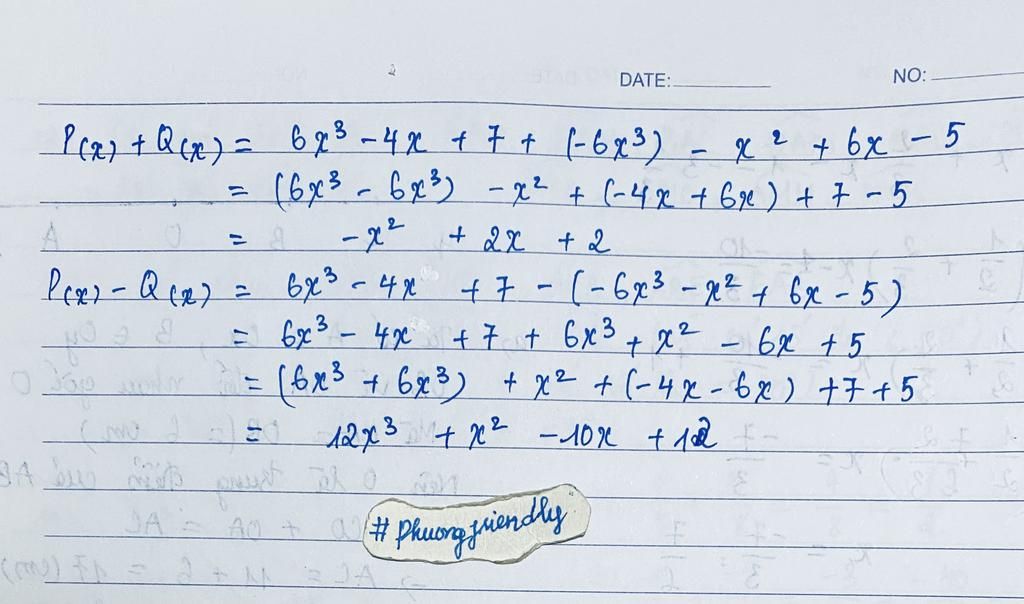 DATE: NO:
P(x) + Q(x) = 6x³ - 4x + 7 + (-6x³) - x² + 6x - 5
= (6x³ - 6x³) - x² + (-4x + 6x) + 7 - 5
= -x² + 2x + 2
P(x) - Q(x) = 6x³ - 4x + 7 - (-6x³ - x² + 6x - 5)
= 6x³ - 4x + 7 + 6x³ + x² - 6x + 5
= (6x³ + 6x³) + x² + (-4x - 6x) + 7 + 5
= 12x³ + x² - 10x + 12
# Phuongfriendly